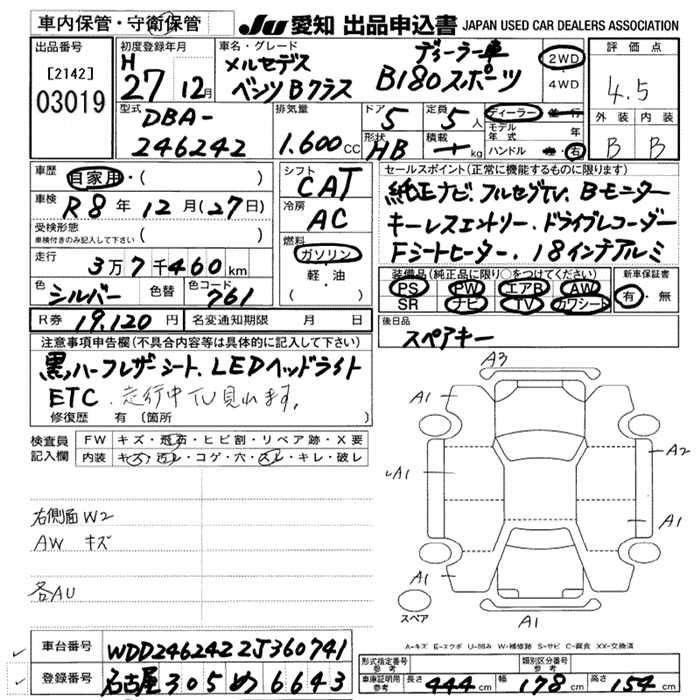 車内保管・守衛保管
JU 愛知 出品申込書 JAPAN USED CAR DEALERS ASSOCIATION
出品番号
[2142]
03019
初度登録年月
H 27年12月
車名・グレード
メルセデス
ベンツBクラス
ディーラー車
B180スポーツ
2WD
4WD
評価点
4.5
外装 内装
B B
型式
DBA-
246242
排気量
1.600cc
ドア
5
定員
5人
ディーラー 並行
モデル年式 年
形状
HB
積載
kg
ハンドル 右
車歴
自家用・( )
車検
R8年12月(27日)
受検形態
車検付きのみ記入して下さい ( )
走行
3万7千460km
色
シルバー
色替
色コード
761
シフト
CAT
冷房
AC
燃料
ガソリン
軽・油
( )
セールスポイント(正常に機能するものに限ります)
純正ナビ、フルセグTV、Bモニター
キーレスエントリー、ドライブレコーダー
Fシートヒーター、18インチアルミ
装備品(純正品に限り○をつけてください)
PS PW エアB AW
SR ナビ TV カワシート
新車保証書
有・無
R券 19,120円
名変通知期限 月 日
後日品
スペアキー
注意事項申告欄(不具合内容等は具体的に記入して下さい)
黒ハーフレザーシート、LEDヘッドライト
ETC、走行中TV見れます。
修復歴 有 (箇所 )
検査員記入欄
FW キズ・飛石・ヒビ割・リペア跡・X要
内装 キズ・汚レ・コゲ・穴・スレ・キレ・破レ
右側面W2
AW キズ
各AU
A3
A1
A1
A1
A2
A1
A1
A1
スペア
A-キズ E-エクボ U-凹み W-補修跡 S-サビ C-腐食 XX-交換済
車台番号
WDD2462422J360741
登録番号
名古屋 305 め 6643
型式指定番号
参考
類別区分番号
参考
車庫証明用
参考
長さ 444cm 幅 178cm 高さ 154cm